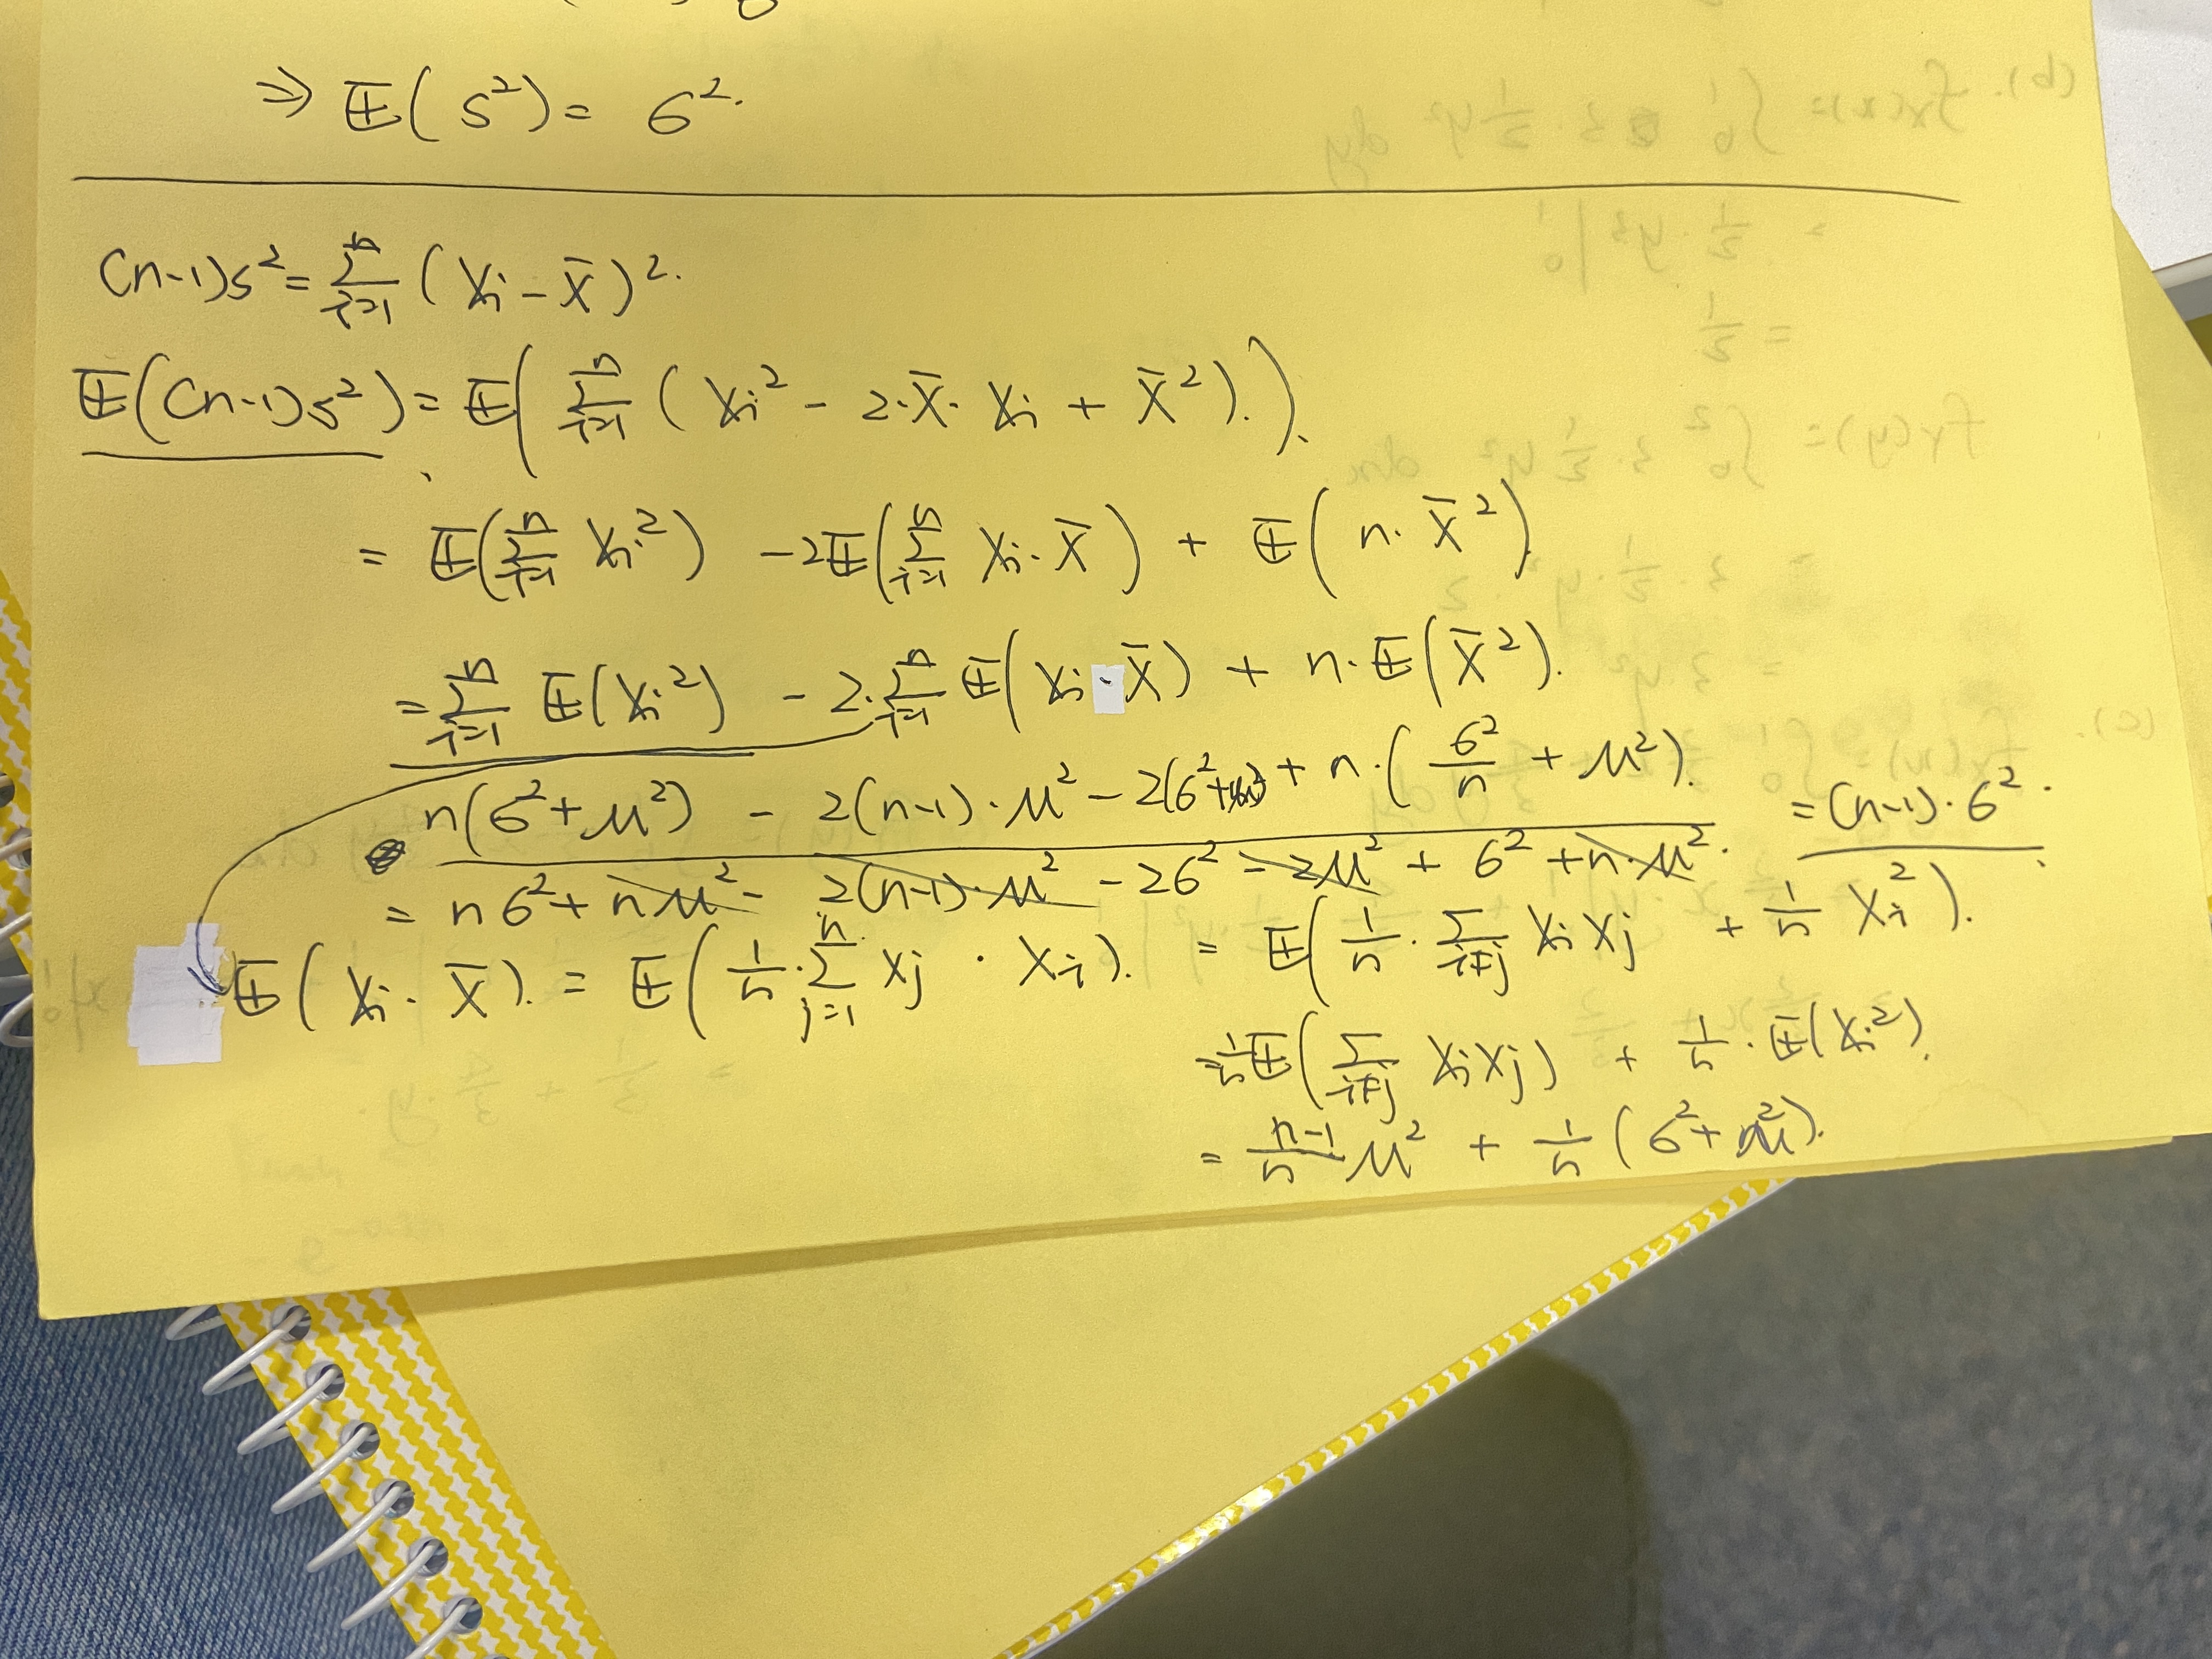 ⇒ 𝔼(S²) = 6².
(n-1)S² = ∑ⁿᵢ₌₁ (Xᵢ - X̄)².
𝔼((n-1)S²) = 𝔼(∑ⁿᵢ₌₁ (Xᵢ² - 2·X̄·Xᵢ + X̄²).).
= 𝔼(∑ⁿᵢ₌₁ Xᵢ²) - 2𝔼(∑ⁿᵢ₌₁ Xᵢ·X̄) + 𝔼(n·X̄²)
= ∑ⁿᵢ₌₁ 𝔼(Xᵢ²) - 2·∑ⁿᵢ₌₁ 𝔼(Xᵢ·X̄) + n·𝔼(X̄²).
n(6²+μ²) - 2(n-1)·μ² - 2(6²+μ²) + n·(6²/n + μ²). = (n-1)·6².
= n6² + nμ² - 2(n-1)·μ² - 26² - 2μ² + 6² + n·μ².
𝔼(Xᵢ·X̄). = 𝔼(1/n·∑ⁿⱼ₌₁ Xⱼ · Xᵢ). = 𝔼(1/n·∑ᵢ≠ⱼ XᵢXⱼ + 1/n Xᵢ²).
= 1/n 𝔼(∑ᵢ≠ⱼ XᵢXⱼ) + 1/n·𝔼(Xᵢ²).
= n-1/n μ² + 1/n (6²+μ²).